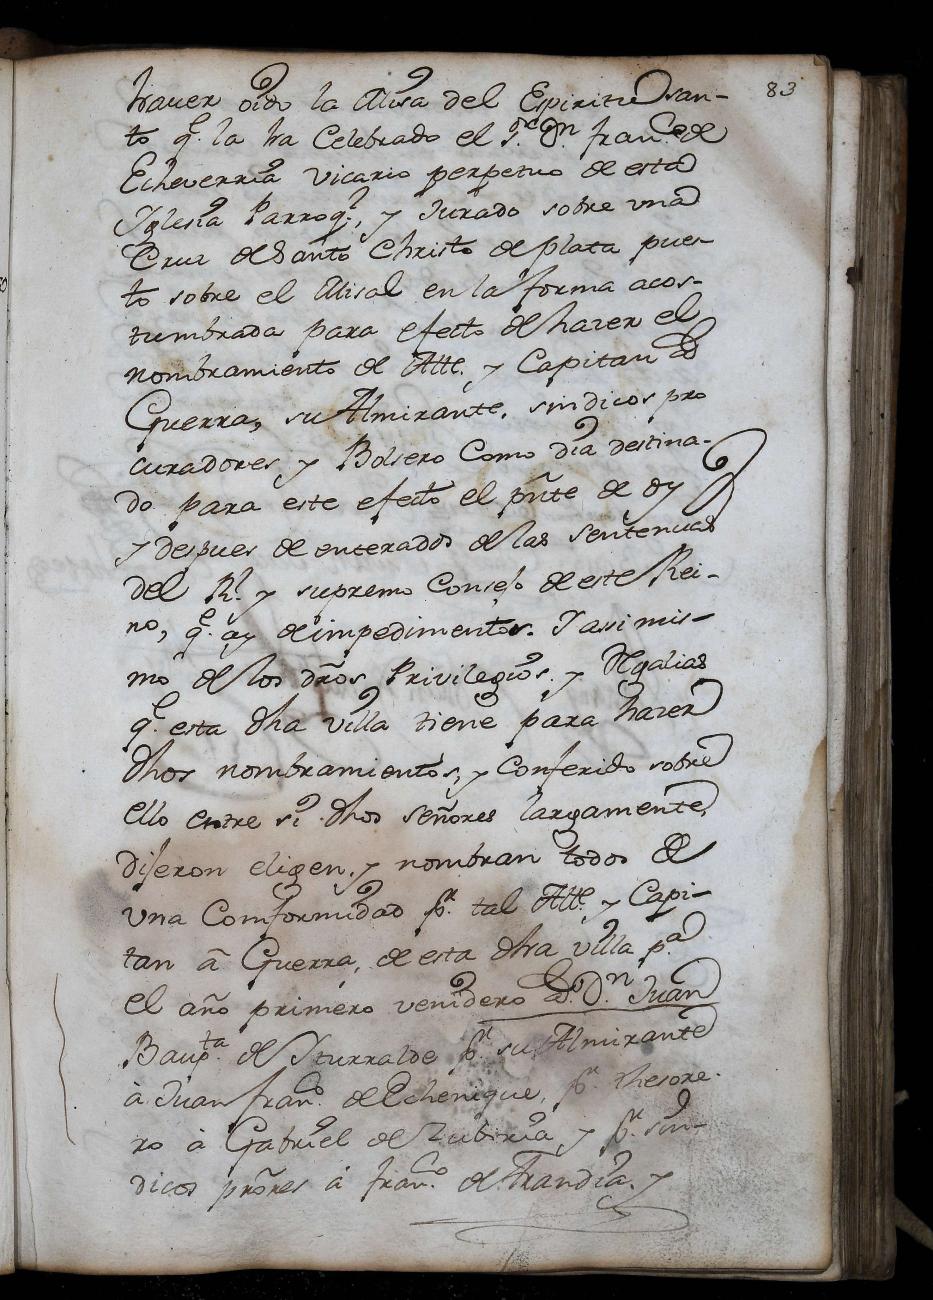 83
haver oido la Misa del Espiritu San-
to q.e la ha Celebrado el S.r D.n fran.co de
Echeverria vicario perpetuo de esta
Iglesia Parroq.l, y Jurado sobre una
Cruz de Santo Christo de plata pues-
to sobre el Misal en la forma acos-
tumbrada para efecto de hazer el
nombramiento de Alle. y Capitan a
Guerra, su Almirante, sindicos pro
curadores y Bolsero Como dia destina-
do para este efecto el pñte de oy
y despues de enterados de las sentencias
del R.l y supremo Consejo de este Rei-
no, q.e ay de impedimentos. Y asi mis-
mo de los dr̃os, Privilegios. y Regalias
q.e esta dha villa tiene para hazer
dhos nombramientos, y Conferido sobre
ello entre si dhos señores largamente,
dijeron eligen, y nombran todos de
una Comformidad p.r tal Alle. y Capi-
tan â Guerra, de esta dha villa p.a
el año primero venidero a D.n Juan
Baup.ta de Yturralde p.r su Almirante
à Juan fran.co de Echenique, p.r thesore-
ro à Gabriel de Zubiria y p.r sin-
dicos prõres à fran.co de Frandia. y